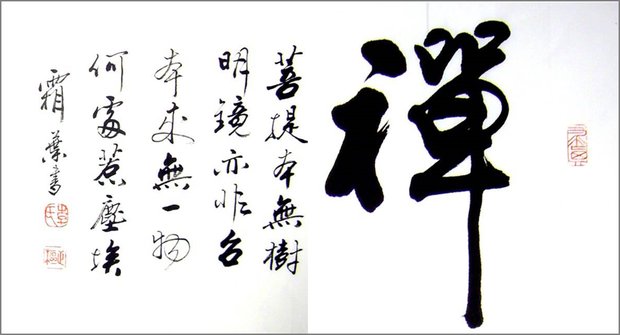 禪
菩提本無樹
明鏡亦非台
本來無一物
何處惹塵埃
霜葉書